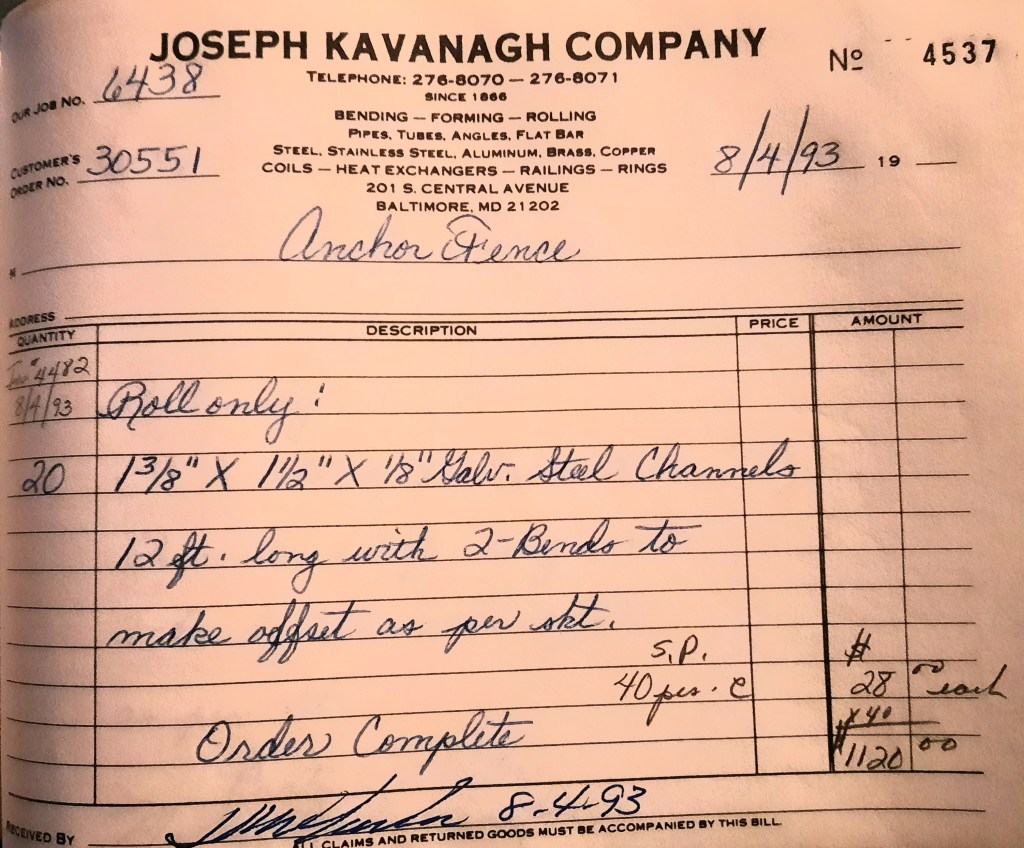 JOSEPH KAVANAGH COMPANY
Nº 4537
TELEPHONE: 276-8070 — 276-8071
SINCE 1866
OUR JOB NO. 6438
BENDING — FORMING — ROLLING
PIPES, TUBES, ANGLES, FLAT BAR
STEEL, STAINLESS STEEL, ALUMINUM, BRASS, COPPER
CUSTOMER'S ORDER NO. 30551
COILS — HEAT EXCHANGERS — RAILINGS — RINGS
8/4/93 19
201 S. CENTRAL AVENUE
BALTIMORE, MD 21202
M Anchor Fence
ADDRESS
QUANTITY DESCRIPTION PRICE AMOUNT
# 4482
8/4/93 Roll only:
20 1 3/8" X 1 1/2" X 1/8" Galv. Steel Channels
12 ft. long with 2-Bends to
make offset as per skt.
S.P. $
40 pcs. @ 28 00 each
x 40
Order Complete $1120 00
RECEIVED BY 8-4-93
ALL CLAIMS AND RETURNED GOODS MUST BE ACCOMPANIED BY THIS BILL